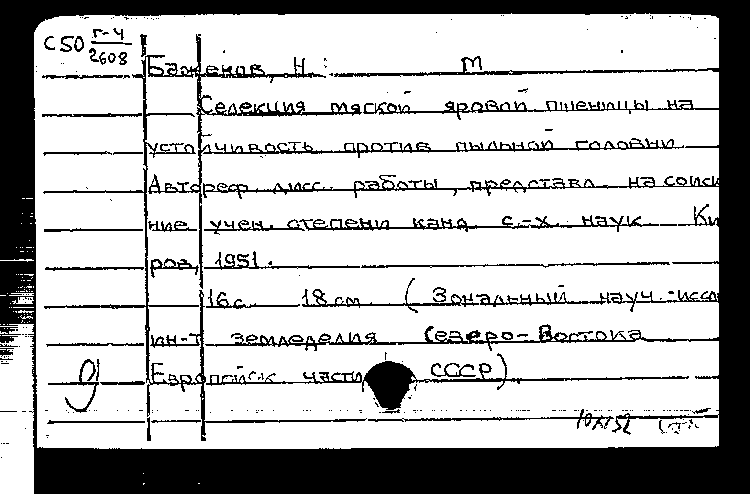 С50 Г-4
2608
Баженов, Н. М
Селекция мягкой яровой пшеницы на
устойчивость против пыльной головни
Автореф. дисс. работы, представл. на соиск
ние учен. степени канд. с.-х. наук Ки
ров, 1951.
16 с. 18 см. (Зональный науч.-иссл
ин-т земледелия Северо-Востока
Европейск. части СССР)
9